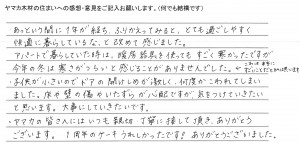 ヤマカ木材の住まいへの感想・意見をご記入お願いします。(何でも結構です)
あっという間に1年が経ち、ふりかえってみると、とても過ごしやすく
快適に暮らしているな、と改めて感じました。
アパートで暮らしていた時は、暖房器具を使ってもすごく寒かったですが
今年の冬は寒さがつらいと感じることがありませんでした。
これは本当にすごいことだとおもいます
子供が小さいのでドアの開けしめが激しく、何度かこわれてしまい
ました。床や壁の傷がいたずらが心配ですが、気をつけていきたい
と思います。大事にしていきたいです。
ヤマカの皆さんにはいつも親切、丁寧に接して頂き、ありがとう
ございます。1周年のケーキうれしかったです? ありがとうございました。